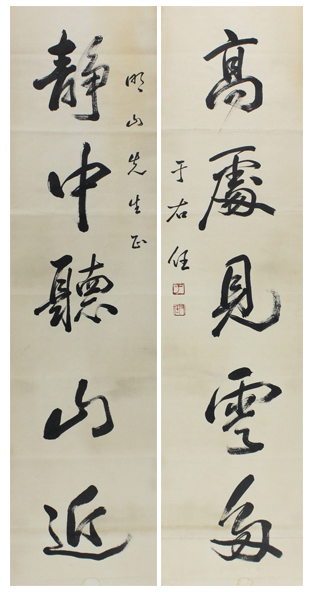 高處見雲多
于右任
明山先生正
靜中聽山近